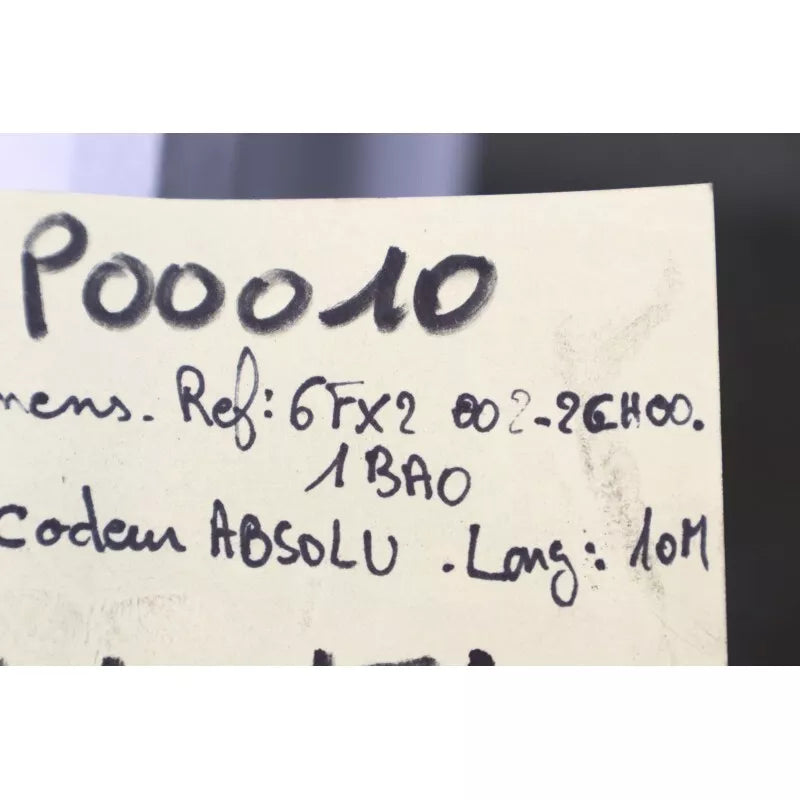 P00010
mens. Ref: 6FX2 002-2CH00.
1BA0
codeur ABSOLU . Long: 10M